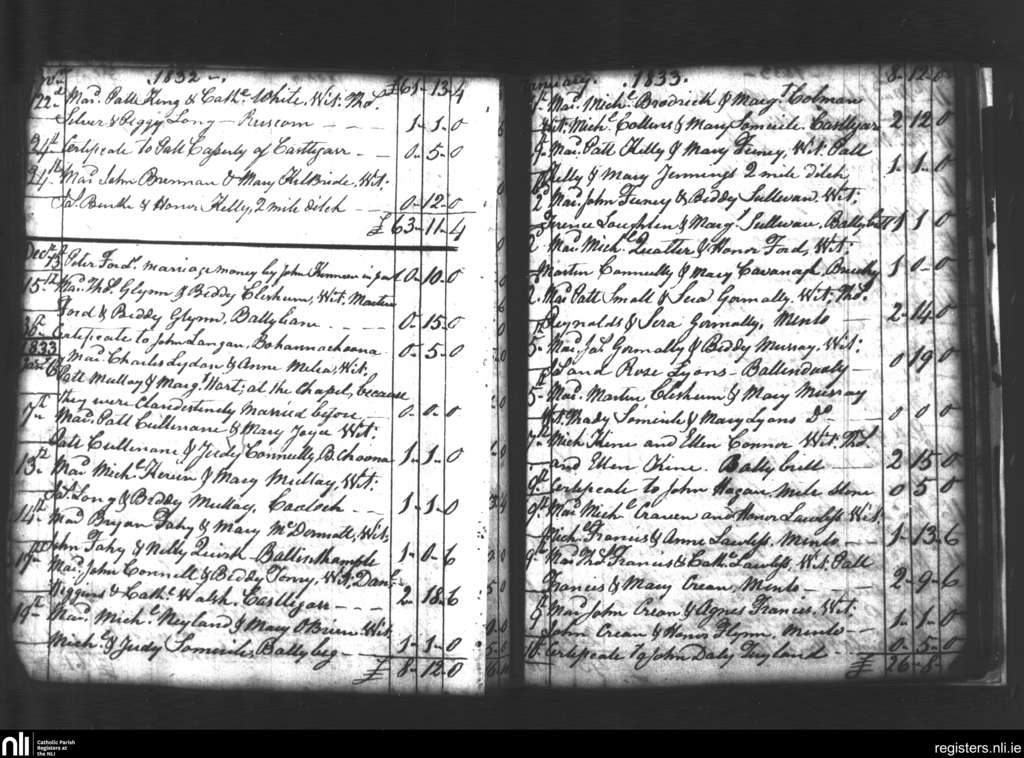 1832
£61-13-4
22d Mard. Patk King & Cathe. White, Wit. Thos.
Silver & Peggy Long - Ruscom - - - 1-1-0
24th Certificate to Patt Caperly of Castlegarr - - 0-5-0
24th Mard. John Brennan & Mary KilBride, Wit.
Jas. Burke & Honor Kelly, 2 mile ditch - - 0-12-0
£63-11-4
Decr.
Peter Ford. marriage money by John in part 0-10-0
15th Mard. Thos. Glynn & Biddy Clisham, Wit. Martin
Ford & Biddy Glynn, - - - 0-15-0
Certificate to John Langan, Bohannachoona - 0-5-0
1833
Mard. Charles Lydon & Anne Melia, Wit.
Patt Mullay & Margt. Hart; at the Chapel, because
they were Clandestinely married before - - 0-0-0
7th Mard. Patt Cullinane & Mary Joyce Wit.
Patt Cullinane & Judy Connelly, B.Choona 1-1-0
13th Mard. Michl. & Mary Mullay, Wit.
Jas. Long & Biddy Mullay, - - - 1-1-0
14th Mard. Bryan Fahy & Mary McDermott, Wit.
John Fahy & Nelly Quirk - 1-0-6
17th Mard. John Connell & Biddy Torny, Wit. Danl.
Higgins & Cathe. Walsh, Castlegarr - - - 2-18-6
19th Mard. Michl. Neyland & Mary O'Brien Wit.
Michl. & Judy Somerile, Ballybeg - 1-1-0
£ 8-12-0
January. 1833. 8-12-0
Mard. Michl. Brodrick & Margt. Colman
Wit. Michl. Collins & Mary Somerile Castlegarr 2-12-0
Mard. Patt Kelly & Mary Feeney, Wit. Patt
Kelly & Mary Jennings 2 mile ditch 1-1-0
2 Mard. John Feeney & Biddy Sullivan, Wit.
Terence Loughlen & Margt. Sullivan, Ballybrit 1-1-0
Mard. Michl. Quatter & Honor Ford, Wit.
Martin Connelly & Mary Cavanagh, 1-0-0
2. Mard. Patt Small & Sera Gormally, Wit. Thos.
Reynolds & Sera Gormally, Menlo - - 2-14-0
5- Mard. Jas. Gormally & Biddy Murray, Wit.
Jas. and Rose Lyons - 0 19 0
5- Mard. Martin Clisham & Mary Murray
Wit. Thady Somerile & Mary Lyons Do. - 0 0 0
7th Mich. Kine and Ellen Connor Wit. Thos.
and Ellen Kine. Ballybritt - - 2 15 0
9th Certificate to John Hagan, Mile Stone 0 5 0
9th Mard. Michl. Craven and Honor Lawless Wit.
Michl. Francis & Anne Lawless, Menlo - - 1-13-6
9th Mard. Thos. Francis & Cathe. Lawless, Wit. Patt
Francis & Mary Crean, Menlo - - 2-9-6
9th Mard. John Crean & Agnes Francis, Wit.
John Crean & Honor Flynn, Menlo - - 1-1-0
10 Certificate to John Daly - - 0-5-0
£ 26-8-0
nli
Catholic Parish
Registers at
the NLI
registers.nli.ie